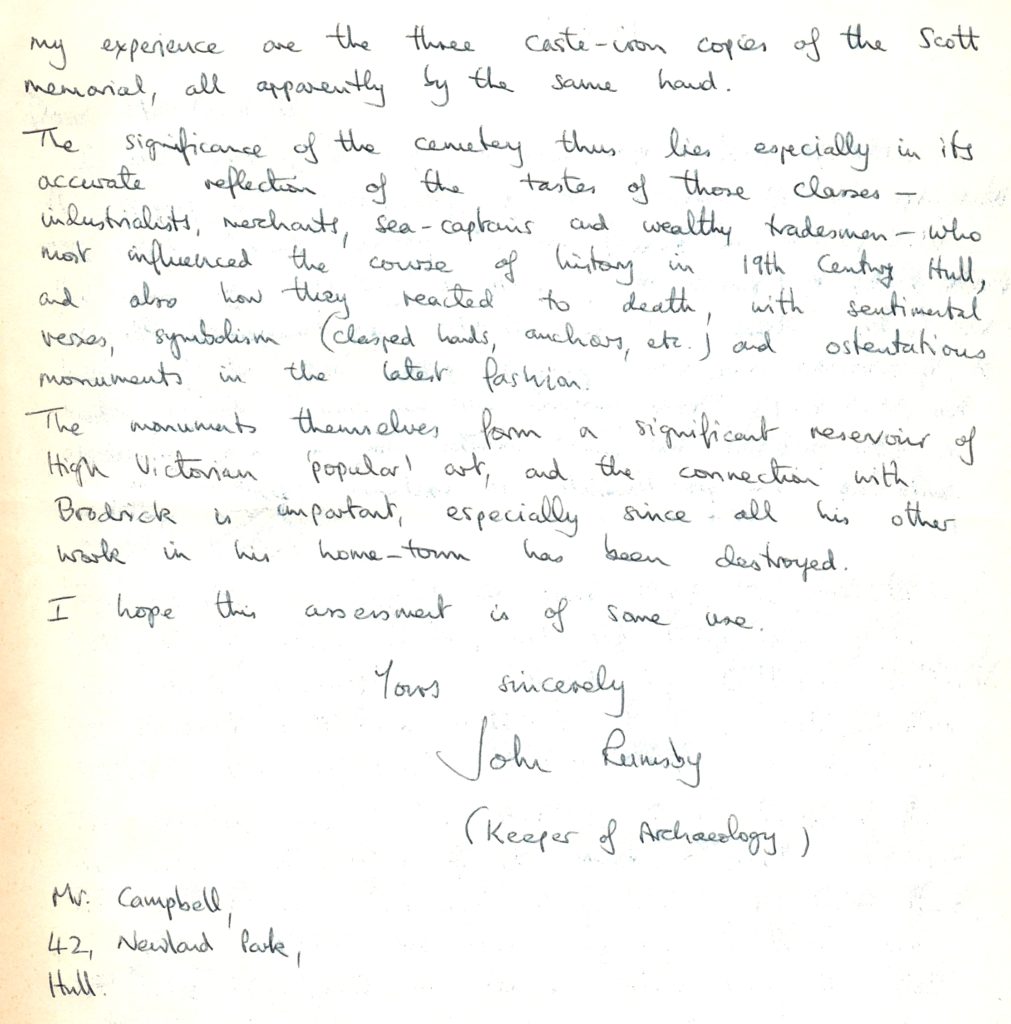 my experience are the three caste-iron copies of the Scott
memorial, all apparently by the same hand.
The significance of the cemetery thus lies especially in its
accurate reflection of the tastes of those classes —
industrialists, merchants, sea-captains and wealthy tradesmen — who
most influenced the course of history in 19th Century Hull,
and also how they reacted to death, with sentimental
verses, symbolism (clasped hands, anchors, etc.) and ostentatious
monuments in the latest fashion.
The monuments themselves form a significant reservoir of
High Victorian 'popular' art, and the connection with
Brodrick is important, especially since all his other
work in his home-town has been destroyed.
I hope this assessment is of some use.
Yours sincerely
John Rumsby
(Keeper of Archaeology)
Mr. Campbell,
42, Newland Park,
Hull.